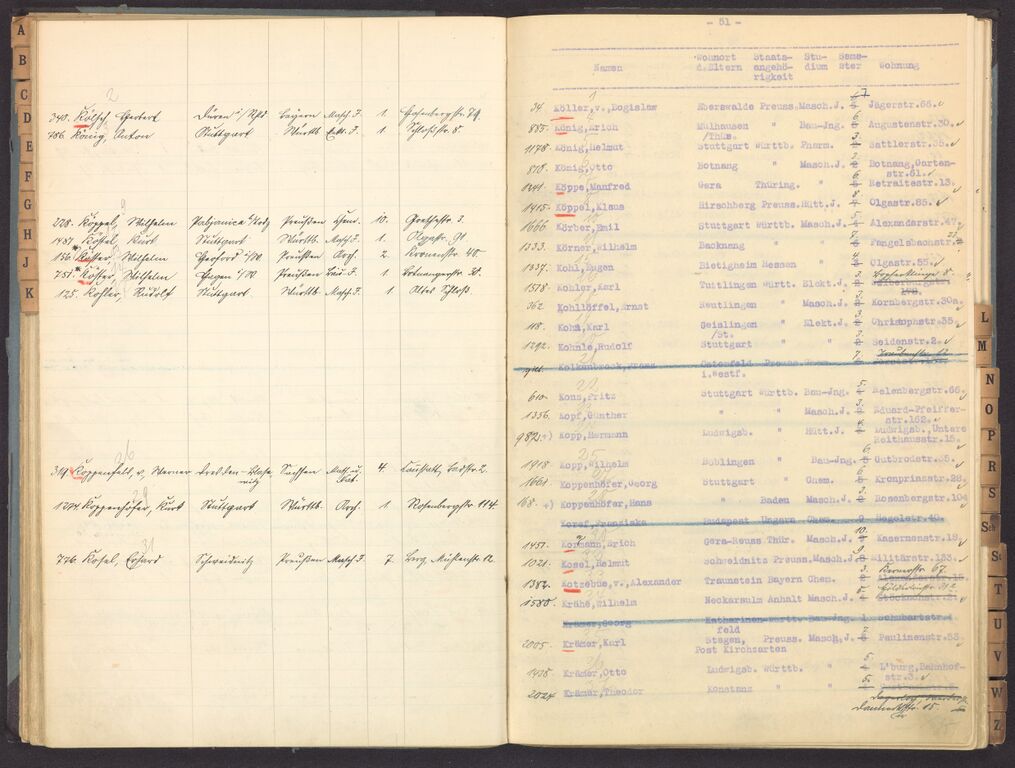 A
B
C
D
E
F
G
H
J
K
2
340. Kölsch, Gerbert Düren i/Rhld Bayern Masch.J. 1.
786. König, Anton Stuttgart Württb. Ekt.J. 1. Schloßstr. 8
9
228. Köppel, Wilhelm Pabjanice Preußen Chem. 10. Goethestr. 3.
1487. Kurt Stuttgart Württb. Masch.J. 1. Olgastr. 91
156.* Wilhelm Preußen Arch. 2 Kronenstr. 40.
751.* Wilhelm Hagen i/W. Preußen Bau-J. 1 Botnangerstr. 30.
125. Kohler, Rudolf Stuttgart Württb. Masch.J. 1 Altes Schloß
26
319. Koppenfels, v, Werner Dresden-Blase- Sachsen Math.u. 4. Cannstatt, 2.
witz
29
1284. Koppenhöfer, Kurt Stuttgart Württb. Arch. 1. Rosenbergstr. 114.
31
776. Kosel, Erhard Schweidnitz Preußen Masch.J. 7. Berg, 12.
- 51 -
Namen
Wohnort Staats- Stu- Seme- Wohnung
d.Eltern angehö- dium ster
rigkeit
34. Köller,v.,Bogislaw Eberswalde Preuss.Masch.J. Jägerstr.66.
885. König,Erich Mülhausen " Bau-Jng. Augustenstr.30.
/Thür.
1178. König,Helmut Stuttgart Württb. Pharm. Sattlerstr.35.
818. König,Otto Botnang " Masch.J. Botnang,Garten-
str.61.
1241. Köppe,Manfred Gera Thüring. " Retraitestr.13.
1415. Köppel,Klaus Hirschberg Preuss.Hütt.J. Olgastr.85.
1666 Körber,Emil Stuttgart Württb. Masch.J. Alexanderstr.47.
1333. Körner,Wilhelm Backnang " " Fangelsbachstr.
1337. Kohl,Eugen Bietigheim Hessen " Olgastr.55.
1578. Kohler,Karl Tuttlingen Württ. Elekt.J. Silberburgstr.
362. Kohllöffel,Ernst Reutlingen " Masch.J. Kornbergstr.30a.
118. Kohn,Karl Geislingen " Elekt.J. Christophstr.35.
/St.
1292. Kohnle,Rudolf Stuttgart " " Seidenstr.2.
Ostenfeld Preuss.Chem.
i.Westf.
610. Kons,Fritz Stuttgart Württb. Bau-Jng. Relenbergstr.66.
1356. Kopf,Günther " " Masch.J. Eduard-Pfeiffer-
str.162.
982. +) Kopp,Hermann Ludwigsb. " Hütt.J. Ludwigsb.,Untere
Reithausstr.15.
1918. Kopp,Wilhelm Böblingen " Bau-Jng. Gutbrodstr.35.
1661. Koppenhöfer,Georg Stuttgart " Chem. Kronprinzstr.28.
168. +) Koppenhöfer,Hans " Baden Masch.J. Rosenbergstr.104
Koref,Franziska Budapest Ungarn Chem. 9 Hegelstr.40.
1457. Kormann,Erich Gera-Reuss Thür. Masch.J. Kasernenstr.19.
1021. Kosel,Helmut Schweidnitz Preuss.Masch.J. Militärstr.133.
1382. Kotzebue,v.,Alexander Traunstein Bayern Chem. Alexanderstr.15.
1580. Krähe,Wilhelm Neckarsulm Anhalt Masch.J. Stöckachstr.21.
Krämer,Georg Katharinen-Württb. Bau-Jng. 1 Schubartstr.
feld
2005. Krämer,Karl Stegen, Preuss. Masch.J. Paulinenstr.53
Post Kirchzarten
1438. Krämer,Otto Ludwigsb. Württb. " L'burg,Bahnhof-
str.3.
2024. Krämer,Theodor Konstanz " "
Danneckstr. 15
L
M
N
O
P
R
S
Sch
St
T
U
V
W
Z